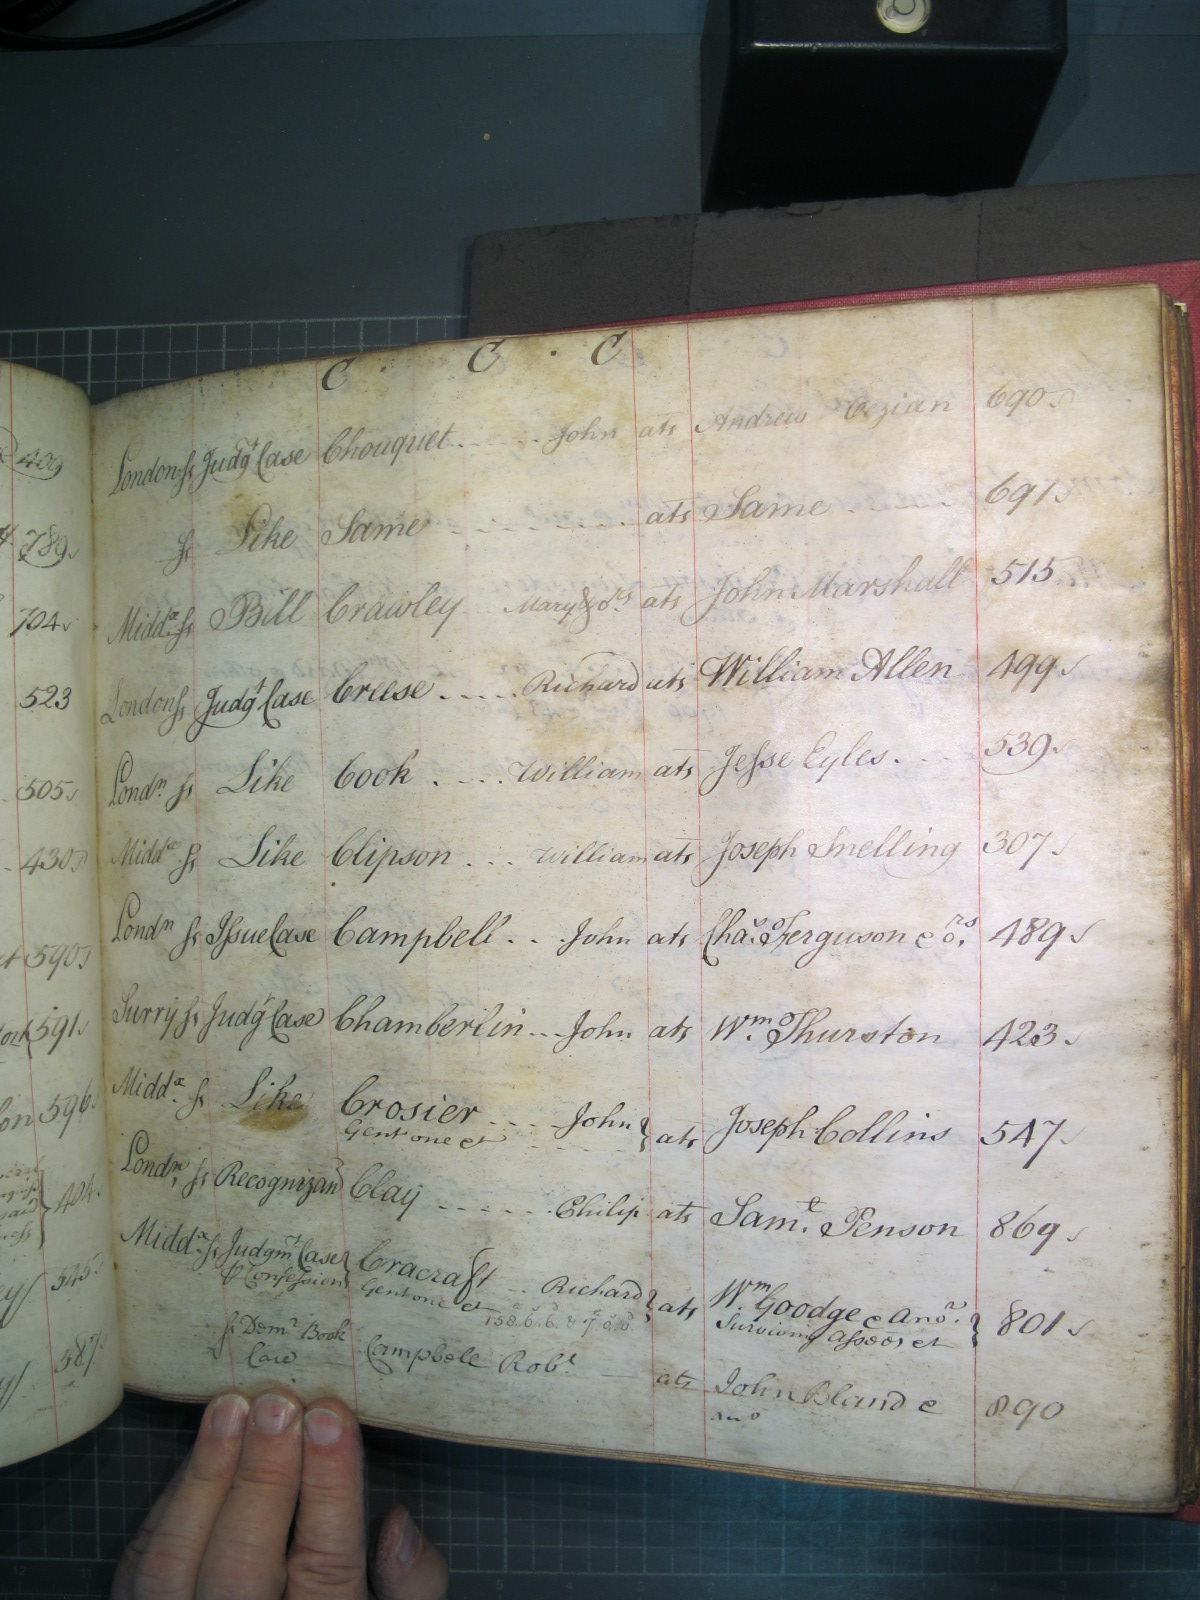 409
789
704
523
505
430
590
591
596
404
545
587
C . C . C
London ss Judgt Case Chouquet . . . . . John ats Andrew Cezian 690
ss Like Same . . . . . . . ats Same . . . . . 691
Middx ss Bill Crawley Mary & ors ats John Marshall 515
London ss Judgt Case Creese . . . . Richard ats William Allen 499
Londn ss Like Cook . . . . William ats Jesse Eyles . . . 539
Middx ss Like Clipson . . . William ats Joseph Snelling 307
Londn ss Issue Case Campbell . . John ats Chas Ferguson & ors 489
Surry ss Judgt Case Chamberlin . . John ats Wm Thurston 423
Middx ss Like Crosier . . . . John } ats Joseph Collins 547
Gent one et
Londn ss Recognizan Clay . . . . . . Philip ats Saml Penson 869
Middx ss Judgmt Case } Cracraft . . Richard } ats Wm Goodge & anor } 801
& Confession Gent one et 158.6.6. & 7.0.0 Surviving Assees et
ss Demr Book Campbele Robt ats John Bland & 890
Law ano